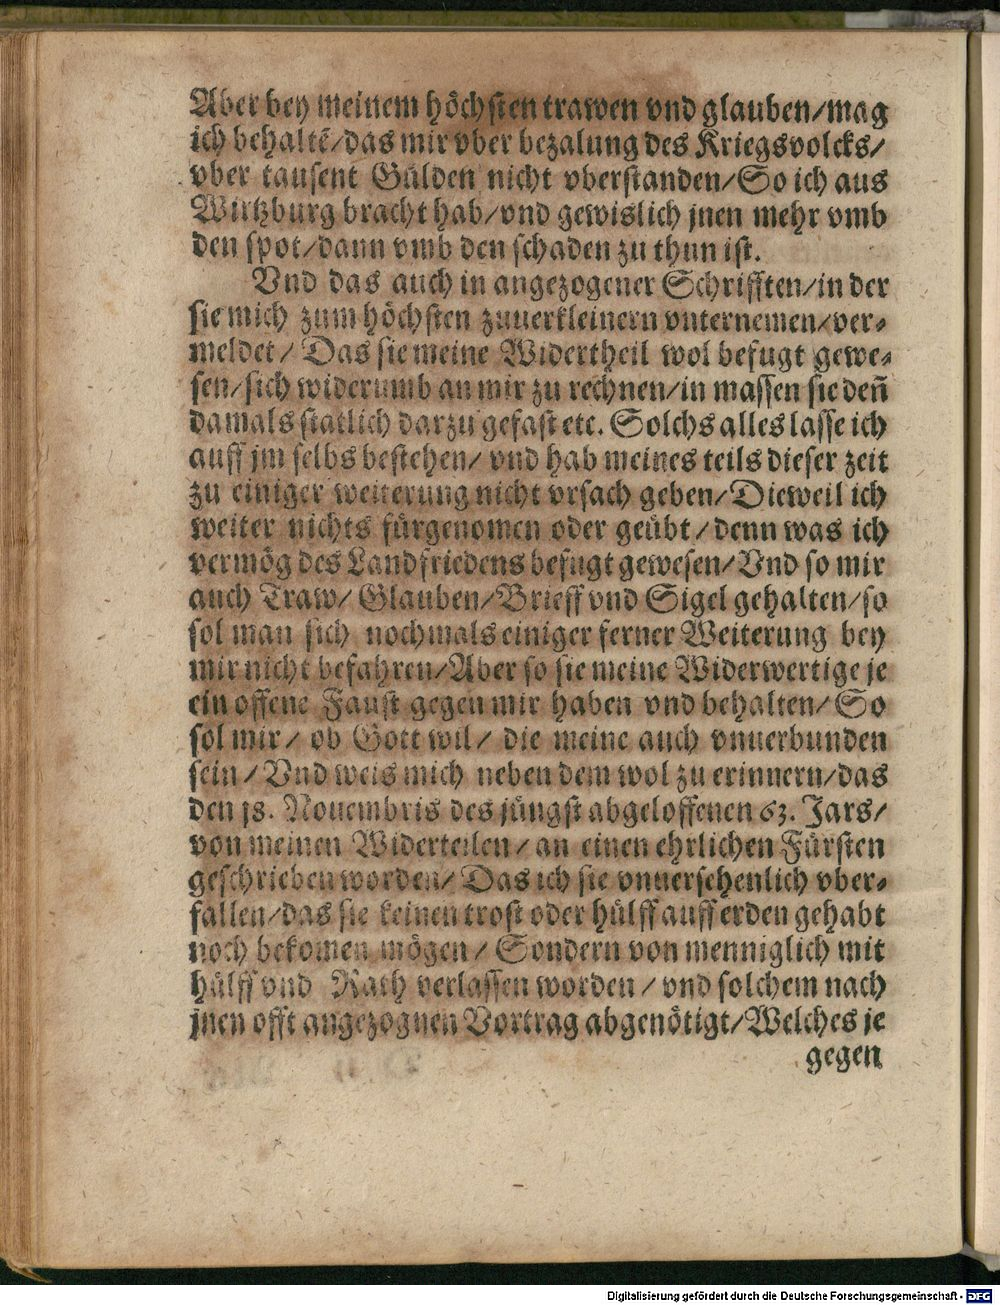 Aber bey meinem höchsten trawen vnd glauben/mag
ich behaltē/das mir vber bezalung des Kriegsvolcks/
vber tausent Gülden nicht vberstanden/So ich aus
Wirtzburg bracht hab/vnd gewislich jnen mehr vmb
den spot/dann vmb den schaden zu thun ist.
Vnd das auch in angezogener Schrifften/in der
sie mich zum höchsten zuuerkleinern vnternemen/ver-
meldet/ Das sie meine Widertheil wol befugt gewe-
sen/sich widerumb an mir zu rechnen/in massen sie deñ
damals statlich darzu gefast etc. Solchs alles lasse ich
auff jm selbs bestehen/ vnd hab meines teils dieser zeit
zu einiger weiterung nicht vrsach geben/Dieweil ich
weiter nichts fürgenomen oder geübt/denn was ich
vermög des Landfriedens befugt gewesen/Vnd so mir
auch Traw/ Glauben/Brieff vnd Sigel gehalten/so
sol man sich nochmals einiger ferner Weiterung bey
mir nicht befahren/Aber so sie meine Widerwertige je
ein offene Faust gegen mir haben vnd behalten/ So
sol mir/ ob Gott wil/ die meine auch vnuerbunden
sein/Vnd weis mich neben dem wol zu erinnern/das
den 18. Nouembris des jüngst abgeloffenen 63. Jars/
von meinen Widerteilen/an einen ehrlichen Fürsten
geschrieben worden/ Das ich sie vnuersehenlich vber-
fallen/das sie keinen trost oder hülff auff erden gehabt
noch bekomen mögen/ Sondern von menniglich mit
hülff vnd Rath verlassen worden/vnd solchem nach
jnen offt angezognen Vortrag abgenötigt/Welches je
gegen
Digitalisierung gefördert durch die Deutsche Forschungsgemeinschaft - DFG